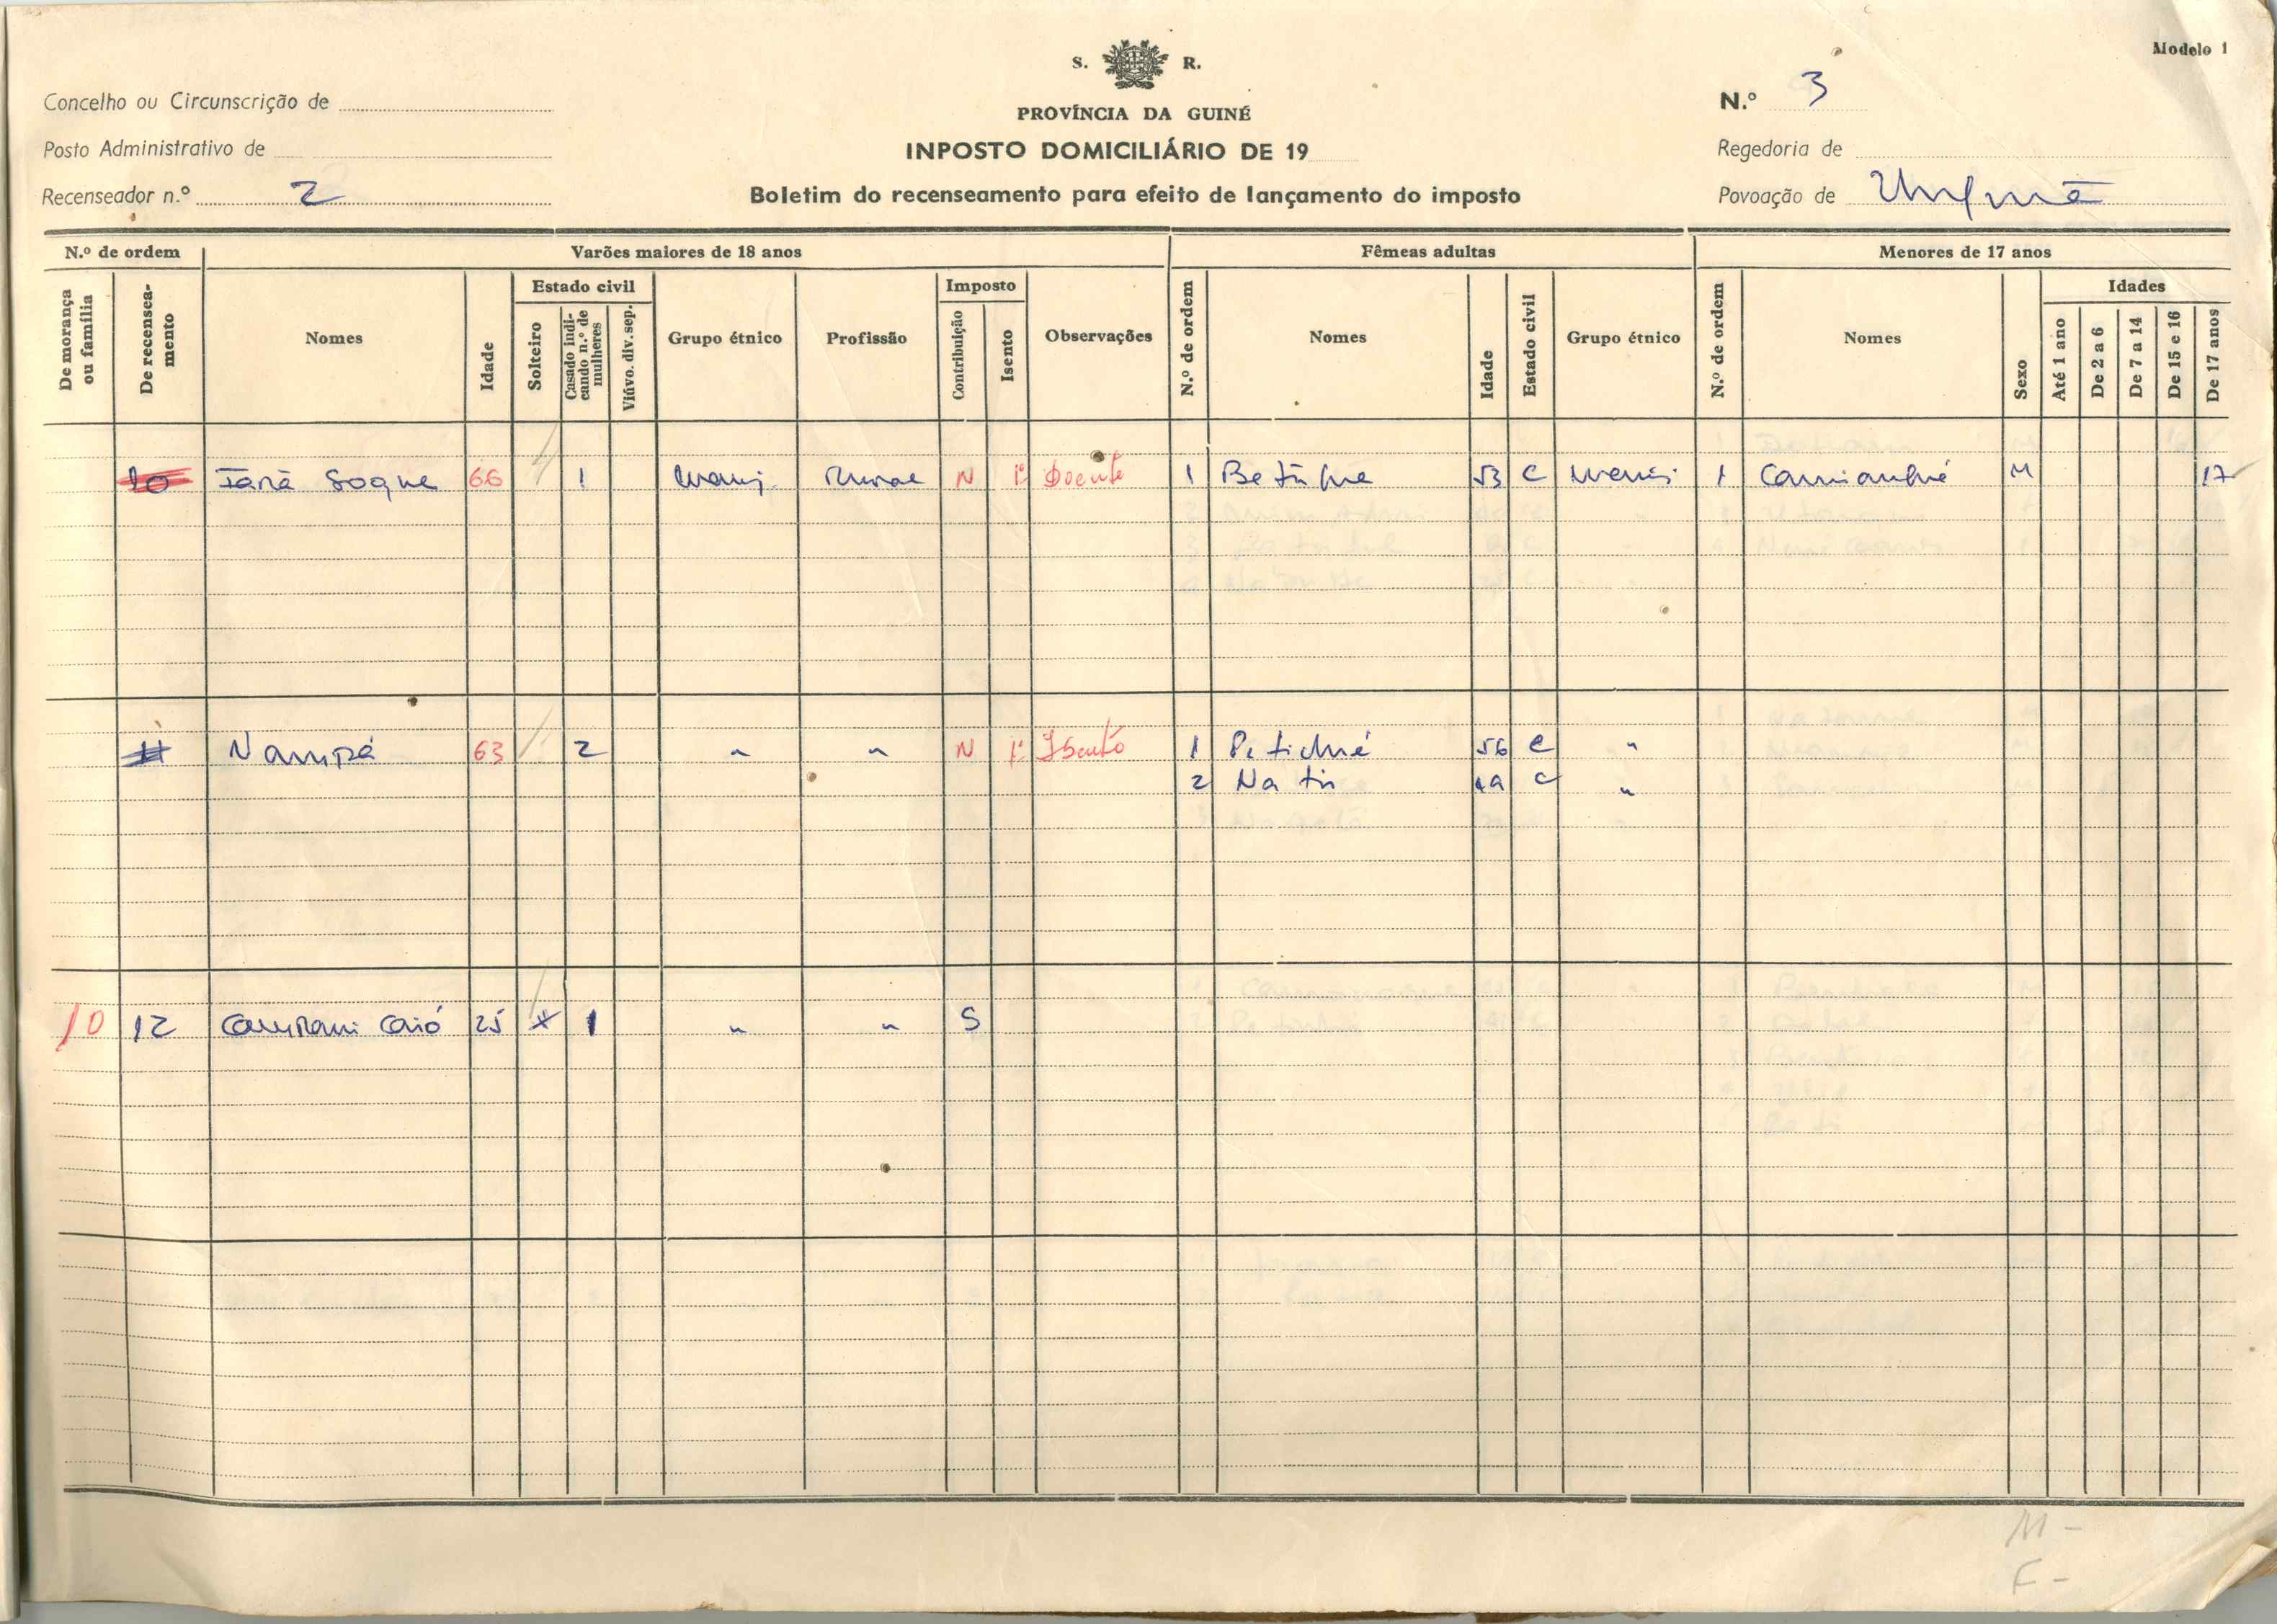 Modelo 1
S. R.
Concelho ou Circunscrição de
PROVÍNCIA DA GUINÉ
N.º 3
Posto Administrativo de
INPOSTO DOMICILIÁRIO DE 19
Regedoria de
Recenseador n.º 2
Boletim do recenseamento para efeito de lançamento do imposto
Povoação de
N.º de ordem
Varões maiores de 18 anos
Fêmeas adultas
Menores de 17 anos
De morança ou família
De recenseamento
Nomes
Idade
Estado civil
Solteiro
Casado indicando n.º de mulheres
Viúvo. div. sep.
Grupo étnico
Profissão
Imposto
Contribuição
Isento
Observações
N.º de ordem
Nomes
Idade
Estado civil
Grupo étnico
N.º de ordem
Nomes
Sexo
Idades
Até 1 ano
De 2 a 6
De 7 a 14
De 15 e 16
De 17 anos
10 Soque 66 1 Manj. Rural N Doente 1 53 C 1 M 17
11 Nampá 63 2 " " N Isento 1 56 C "
2 Na 49 C "
10 12 Caió 25 x 1 " " S
M -
F -